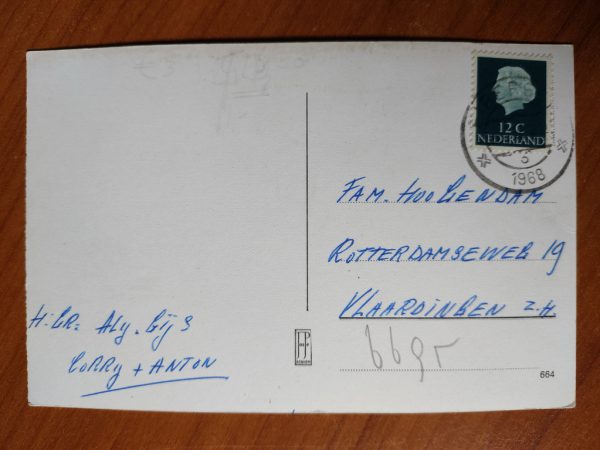 12 C
NEDERLAND
1968
FAM. HOOGENDAM
ROTTERDAMSEWEG 19
VLAARDINGEN Z.H.
H. GR. ALY, GIJS
CORRY + ANTON
664